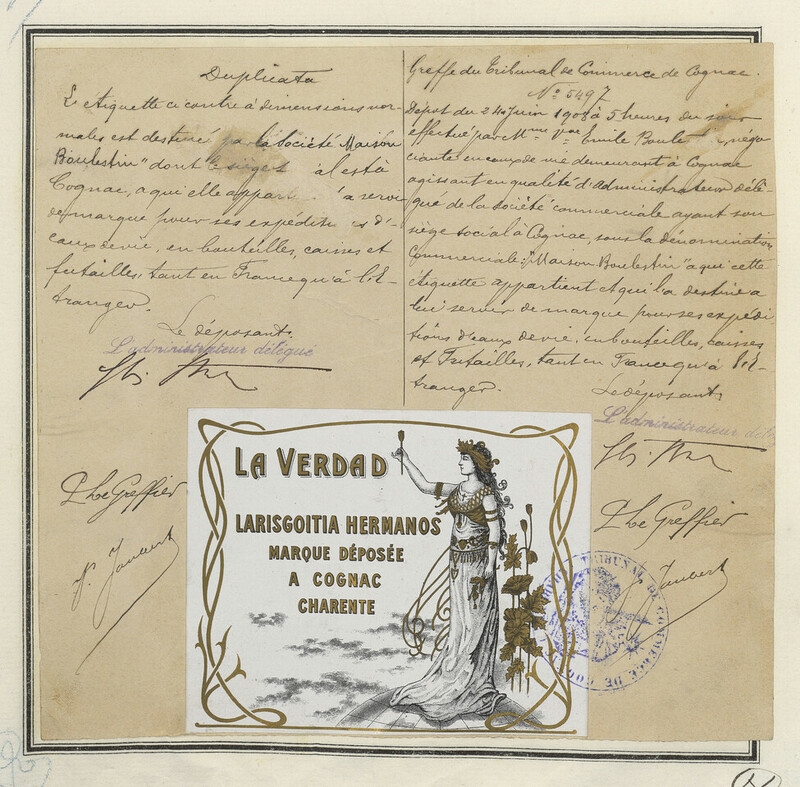 Duplicata
L'étiquette ci contre à dimensions nor-
males est destiné par la Société Maison
Boulestin" dont le siège est à
Cognac, a qui elle appart a servi
de marque pour ses expéditi s d'e-
eaux de vie, en bouteilles, caisses et
futailles, tant en France qu'à l'E-
tranger.
Le déposant
L'administrateur délégué
P. Le Greffier
Greffe du Tribunal de Commerce de Cognac.
No 5497
Dépot du 24 Juin 1908 à 5 heures du soir
effectué par Mme Vve Emile Boule négo-
ciante en eaux de vie demeurant à Cognac
agissant en qualité d'Administrateur délé-
gué de la Société commerciale ayant son
siège social à Cognac, sous la dénomination
Commerciale: "Maison Boulestin" a qui cette
étiquette appartient et qui la destine a
lui servir de marque pour ses expédi-
tions d'eaux de vie, en bouteilles, caisses
et Futailles, tant en France qu'à l'E-
tranger.
Le déposant
L'administrateur dél
P. Le Greffier
LA VERDAD
LARISGOITIA HERMANOS
MARQUE DÉPOSÉE
A COGNAC
CHARENTE
TRIBUNAL DE COMMERCE DE